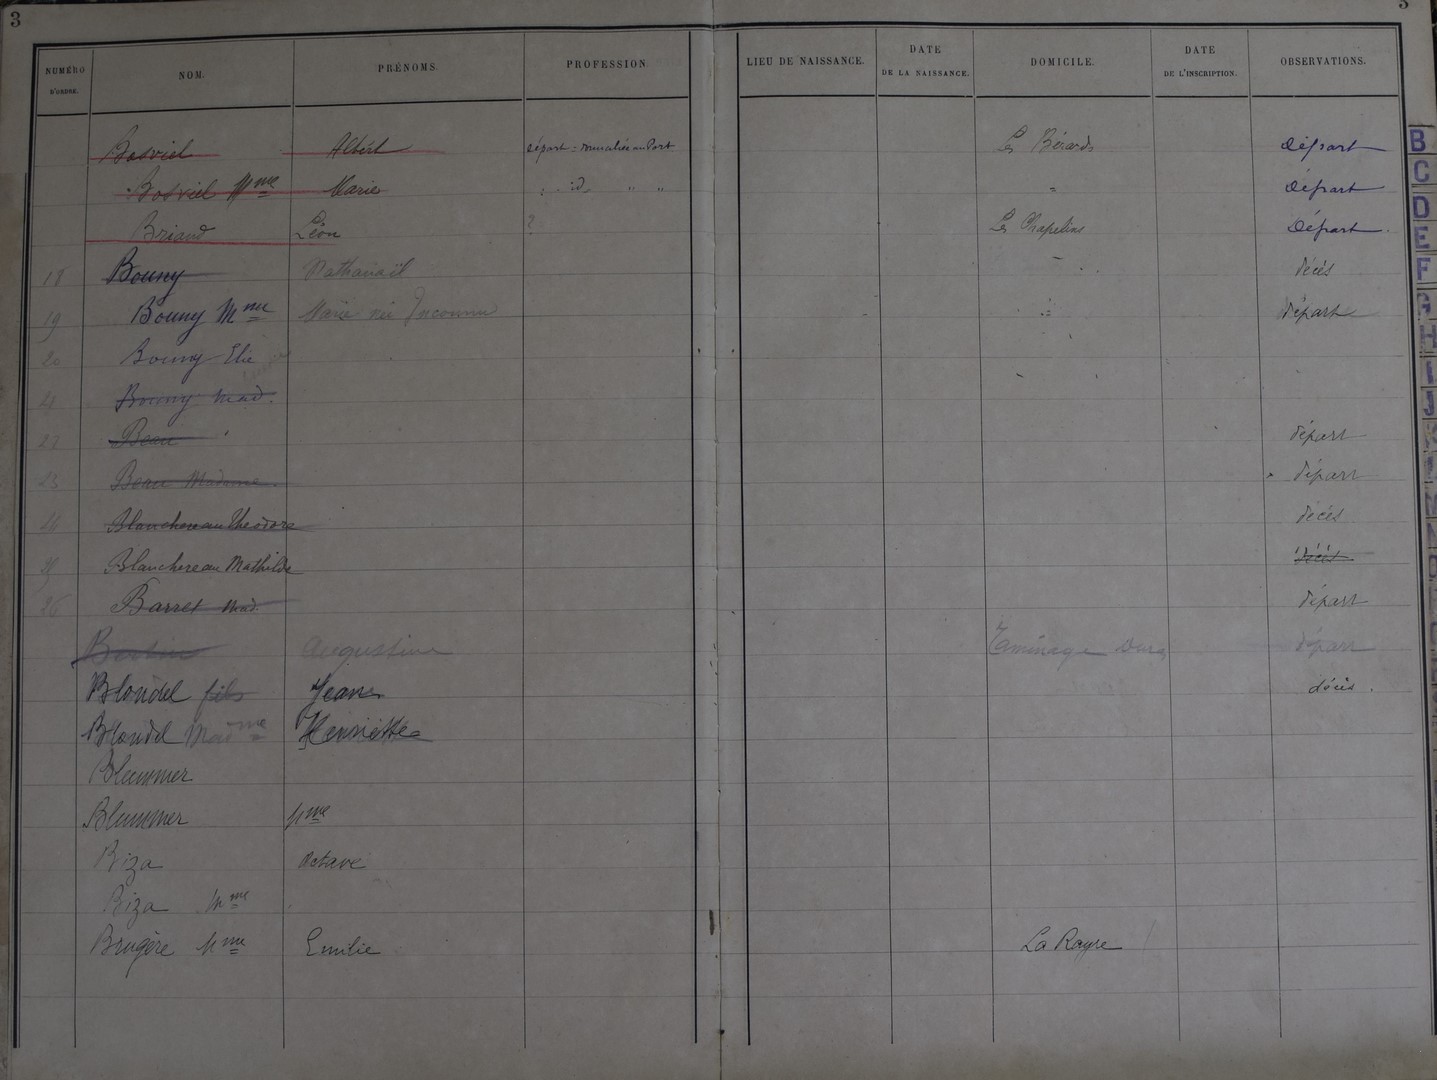 3 3
NUMÉRO D'ORDRE. NOM. PRÉNOMS. PROFESSION. LIEU DE NAISSANCE. DATE DE LA NAISSANCE. DOMICILE. DATE DE L'INSCRIPTION. OBSERVATIONS.
Bosviel Albert départ = Les Bérards départ
Bosviel Mme Marie id " " " départ
Briand Léon ? Les Chapelins départ
18 Bouny Nathanaël décès
19 Bouny Mme Marie née Inconnu départ
20 Bouny Elie
21 Bouny Mad.
22 Beau départ
23 Beau Madame départ
Blanchereau Théodore décès
Blanchereau Mathilde décès
26 Barret Mad. départ
Augustine départ
Blondel fils Jean décès.
Blondel Madme Henriette
Blummer
Blummer Mme
Biza Octave
Biza Mme
Brugère Mme Emilie La Rayre
B
C
D
E
F
G
H
I
J